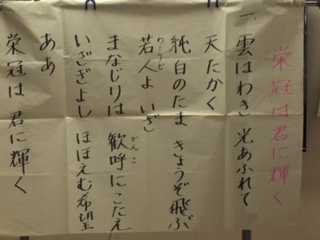 栄冠は君に輝く
一、雲はわき 光あふれて
天たかく
純白のたま きょうぞ飛ぶ
若人よ いざ
まなじりは 歓呼にこたえ
いさぎよし ほほえむ希望
ああ
栄冠は 君に輝く